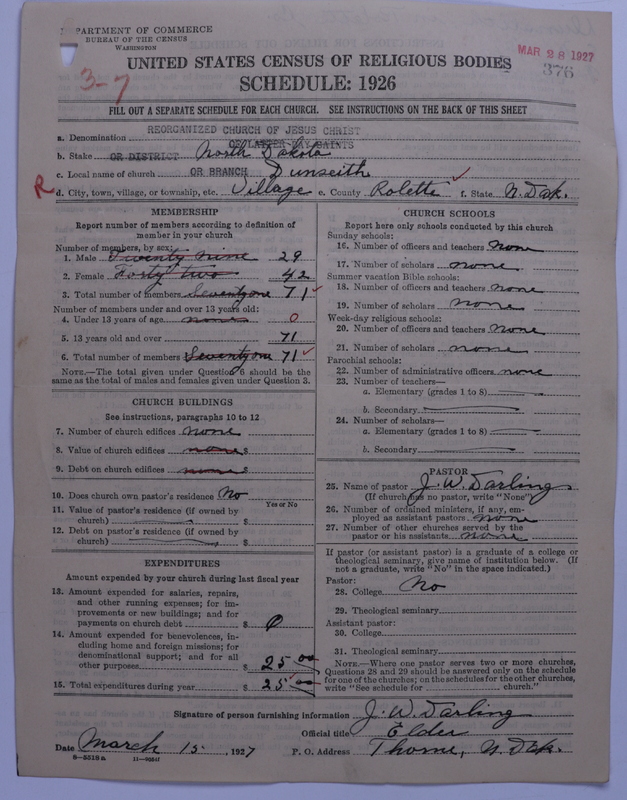 DEPARTMENT OF COMMERCE
BUREAU OF THE CENSUS
WASHINGTON
MAR 28 1927
376
3-7
UNITED STATES CENSUS OF RELIGIOUS BODIES
SCHEDULE: 1926
FILL OUT A SEPARATE SCHEDULE FOR EACH CHURCH. SEE INSTRUCTIONS ON THE BACK OF THIS SHEET
REORGANIZED CHURCH OF JESUS CHRIST
a. Denomination OF LATTER DAY SAINTS
b. Stake OR DISTRICT North Dakota
c. Local name of church OR BRANCH Dunseith
R d. City, town, village, or township, etc. Village e. County Rolette f. State N. Dak.
MEMBERSHIP
Report number of members according to definition of
member in your church
Number of members, by sex:
1. Male Twenty nine 29
2. Female Forty two 42
3. Total number of members Seventyone 71
Number of members under and over 13 years old:
4. Under 13 years of age none 0
5. 13 years old and over 71
6. Total number of members Seventyone 71
NOTE.—The total given under Question 6 should be
same as the total of males and females given under Question 3.
CHURCH BUILDINGS
See instructions, paragraphs 10 to 12
7. Number of church edifices none
8. Value of church edifices none $
9. Debt on church edifices none $
10. Does church own pastor's residence No
Yes or No
11. Value of pastor's residence (if owned by
church) $
12. Debt on pastor's residence (if owned by
church) $
EXPENDITURES
Amount expended by your church during last fiscal year
13. Amount expended for salaries, repairs,
and other running expenses; for im-
provements or new buildings; and for
payments on church debt $
14. Amount expended for benevolences, in-
cluding home and foreign missions; for
denominational support; and for all
other purposes $ 25 00
15. Total expenditures during year $ 25 00
CHURCH SCHOOLS
Report here only schools conducted by this church
Sunday schools:
16. Number of officers and teachers none
17. Number of scholars none
Summer vacation Bible schools:
18. Number of officers and teachers none
19. Number of scholars none
Week-day religious schools:
20. Number of officers and teachers none
21. Number of scholars none
Parochial schools:
22. Number of administrative officers none
23. Number of teachers—
a. Elementary (grades 1 to 8)
b. Secondary
24. Number of scholars—
a. Elementary (grades 1 to 8)
b. Secondary
PASTOR
25. Name of pastor J. W. Darling
(If church has no pastor, write "None")
26. Number of ordained ministers, if any, em-
ployed as assistant pastors none
27. Number of other churches served by the
pastor or his assistants none
If pastor (or assistant pastor) is a graduate of a college or
theological seminary, give name of institution below. (If
not a graduate, write "No" in the space indicated.)
Pastor:
28. College No
29. Theological seminary
Assistant pastor:
30. College
31. Theological seminary
NOTE.—Where one pastor serves two or more churches,
Questions 28 and 29 should be answered only on the schedule
for one of the churches; on the schedules for the other churches,
write "See schedule for church."
Signature of person furnishing information J. W. Darling
Official title Elder
Date March 15, 1927 P. O. Address Thorne, N. Dak.
8-5518a